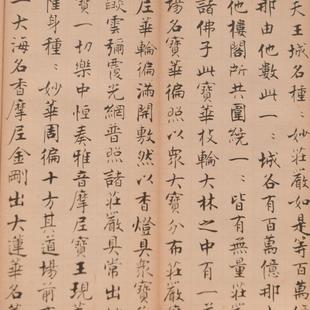 天王城名種〻妙莊嚴如是等百萬
那由他數此一〻城各有百萬億那
他樓閣所共圍繞一〻皆有無量莊
諸佛子此寶華枝輪大林之中有一
場名寶華徧照以衆大寶分布莊嚴
尼華輪徧滿開敷然以香燈具衆寶
燄雲彌覆光網普照諸莊嚴具常出
寶一切樂中恒奏雅音摩尼寶王現
身種〻妙華周徧十方其道場前
一大海名香摩尼金剛出大蓮華名